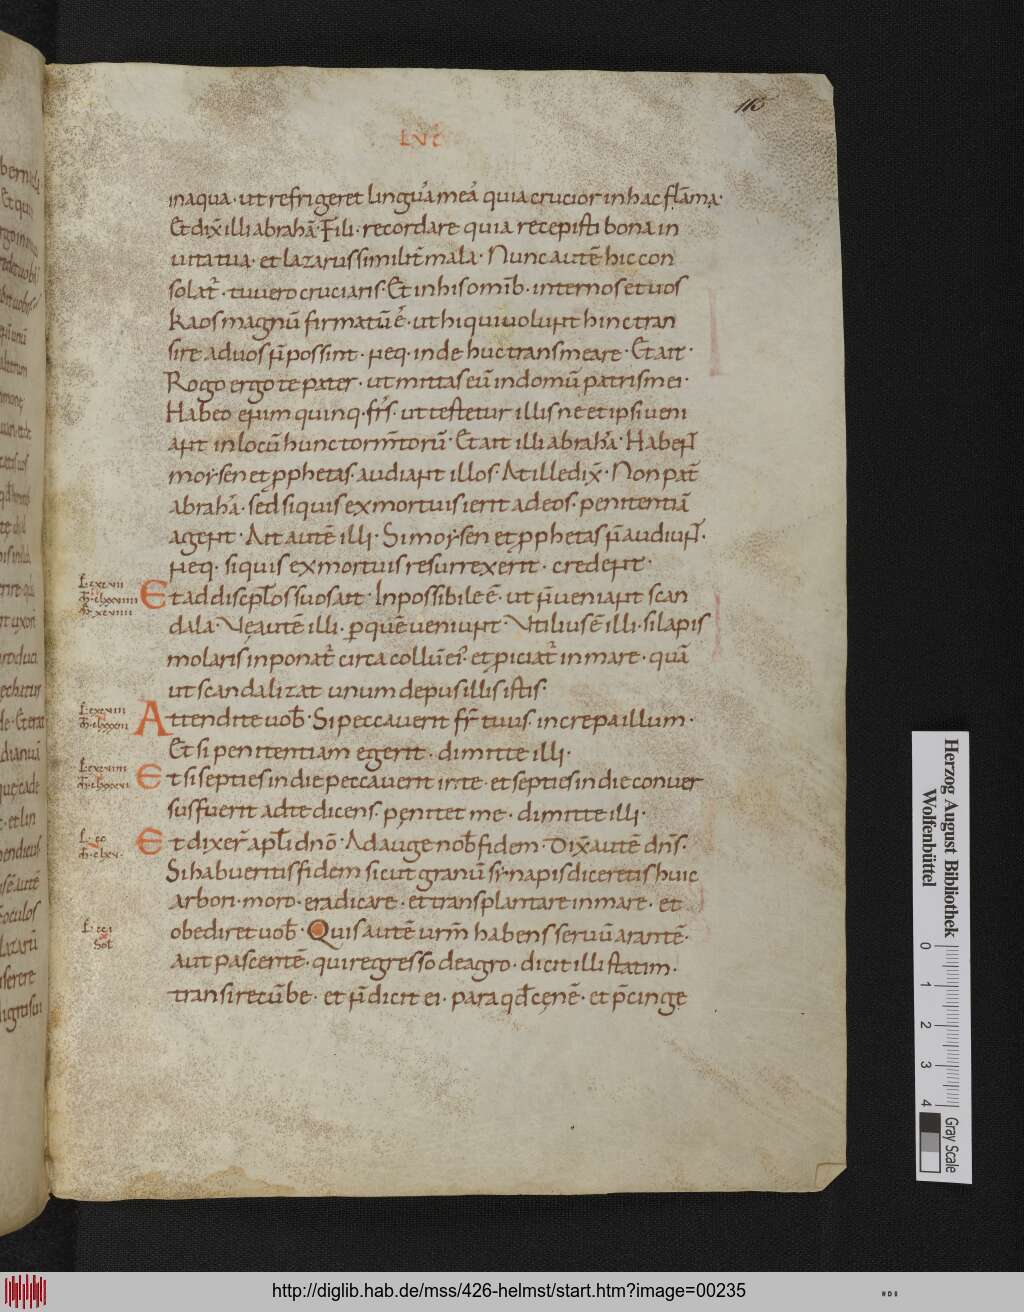 115
LVC
inaqua· ut refrigeret linguā meā quia crucior in hac flāma·
Et dix̄ illi abrahā· Fili· recordare quia recepisti bona in
uita tua· et lazarus similit̄ mala· Nunc autē hic con
solat̄· tu uero cruciaris· Et in his omīb· inter nos et uos
kaos magnū firmatū ē· ut hi qui uolunt hinc tran
sire ad uos n̄ possint· neq· inde huc transmeare· Et ait·
Rogo ergo te pater· ut mittas eū in domū patris mei·
Habeo enim quinq· fr̄s· ut testetur illis ne et ipsi ueni
ant in locū hunc torm̄torū· Et ait illi abrahā· Habent
moysen et pphetas· audiant illos· At ille dix̄· Non pat̄
abrahā· sed siquis ex mortuis ierit ad eos· penitentiā
agent· Ait autē illi· Si moysen et pphetas n̄ audiunt·
neq· siquis ex mortuis resurrexerit· credent·
Et ad discipl̄os suos ait· Inpossibile ē· ut n̄ ueniant scan
dala· Vę autē illi· p quē ueniunt· Vtilius ē illi· si lapis
molaris inponat̄ circa collū ei· et piciat̄ in mare· quā
ut scandalizat unum de pusillis istis·
Attendite uob̄· Si peccauerit fr̄ tuus· increpa illum·
Et si penitentiam egerit· dimitte illi·
Et si septies in die peccauerit in te· et septies in die conuer
sus fuerit ad te dicens· penitet me· dimitte illi·
Et dixer̄ apl̄i dnō· Adauge nob̄ fidem· Dix̄ autē dn̄s·
Si habueritis fidem sicut granū synapis diceretis huic
arbori· moro· eradicare· et transplantare in mare· et
obediret uob̄· Quis autē urm̄ habens seruū arantē·
aut pascentē· qui regresso de agro· dicit illi statim·
transi recūbe· et n̄ dicit ei· para qd̄ cęnē· et p̄cinge
Herzog August Bibliothek
Wolfenbüttel
0 1 2 3 4
Gray Scale
http://diglib.hab.de/mss/426-helmst/start.htm?image=00235